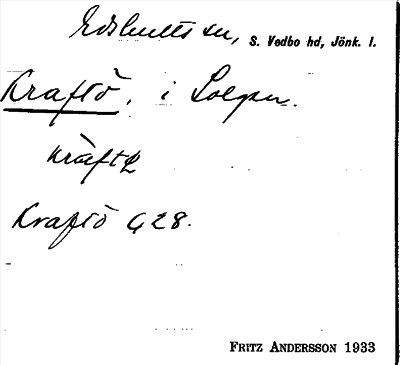 Edshults sn, S. Vedbo hd, Jönk. l.
Kraftö, i Solgen.
kràftö
Kraftö G28.
FRITZ ANDERSSON 1933